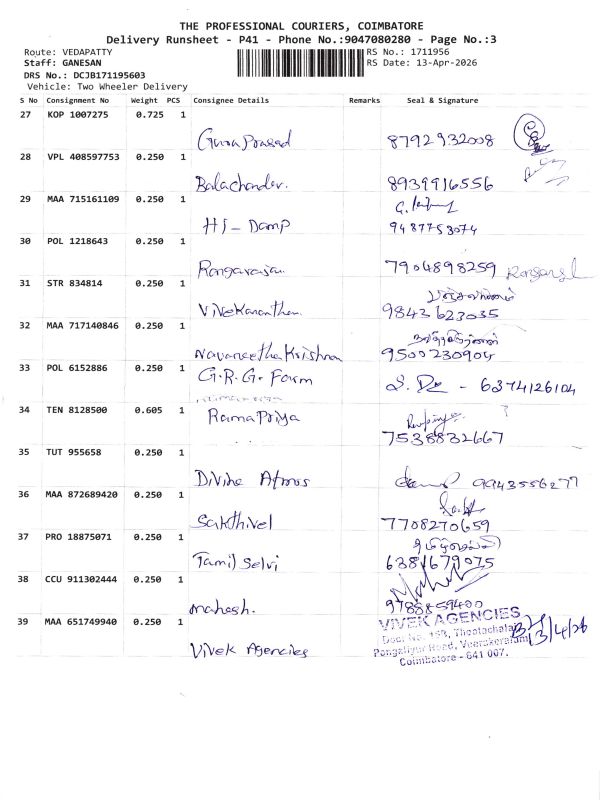 THE PROFESSIONAL COURIERS, COIMBATORE
Delivery Runsheet - P41 - Phone No.:9047080280 - Page No.:3
Route: VEDAPATTY
Staff: GANESAN
DRS No.: DCJB171195603
Vehicle: Two Wheeler Delivery
RS No.: 1711956
RS Date: 13-Apr-2026
S No Consignment No Weight PCS Consignee Details Remarks Seal & Signature
27 KOP 1007275 0.725 1
Guru Prasad 8792932008
28 VPL 408597753 0.250 1
Balachander. 8939916556
29 MAA 715161109 0.250 1
HJ - Damp 9487753074
30 POL 1218643 0.250 1
Rangarajan 7904898259
31 STR 834814 0.250 1
Vivekananthan 9843623035
32 MAA 717140846 0.250 1
Navaneetha Krishnan 9500230904
33 POL 6152886 0.250 1
G.R.G. Farm - 6374126104
34 TEN 8128500 0.605 1
Rama Priya 7538832667
35 TUT 955658 0.250 1
Divine Atmos 9943556277
36 MAA 872689420 0.250 1
Sakthivel 7708270659
37 PRO 18875071 0.250 1
Tamil Selvi தமிழ்செல்வி
6381679075
38 CCU 911302444 0.250 1
mahesh. 9788859400
39 MAA 651749940 0.250 1
Vivek Agencies
VIVEK AGENCIES
Door No. 15B, Theetachalai
Road, Veerakeralam
Coimbatore - 641 007.
13/4/26